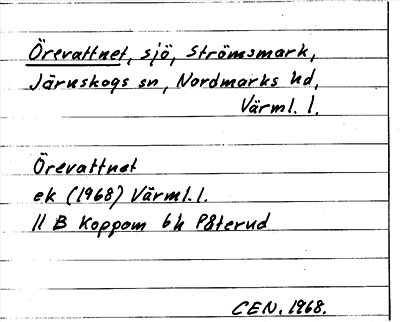 Örevattnet, sjö, Strömsmark,
Järnskogs sn, Nordmarks hd,
Värml. l.
Örevattnet
ek (1968) Värml. l.
11 B Koppom 6h Påterud
CEN. 1968.